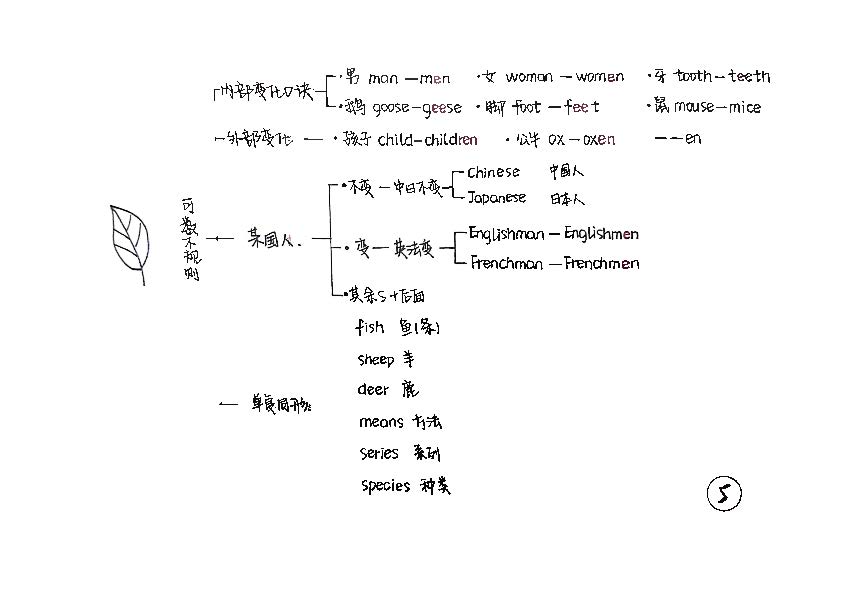 内部变化口诀 ·男 man—men ·女 woman—women ·牙 tooth—teeth
·鹅 goose—geese ·脚 foot—feet ·鼠 mouse—mice
外部变化 — ·孩子 child—children ·公牛 ox—oxen ——en
可数不规则
某国人.
·不变—中日不变
Chinese 中国人
Japanese 日本人
·变—英法变
Englishman—Englishmen
Frenchman—Frenchmen
·其余S+后面
单复同形
fish 鱼(条)
sheep 羊
deer 鹿
means 方法
series 系列
species 种类
5